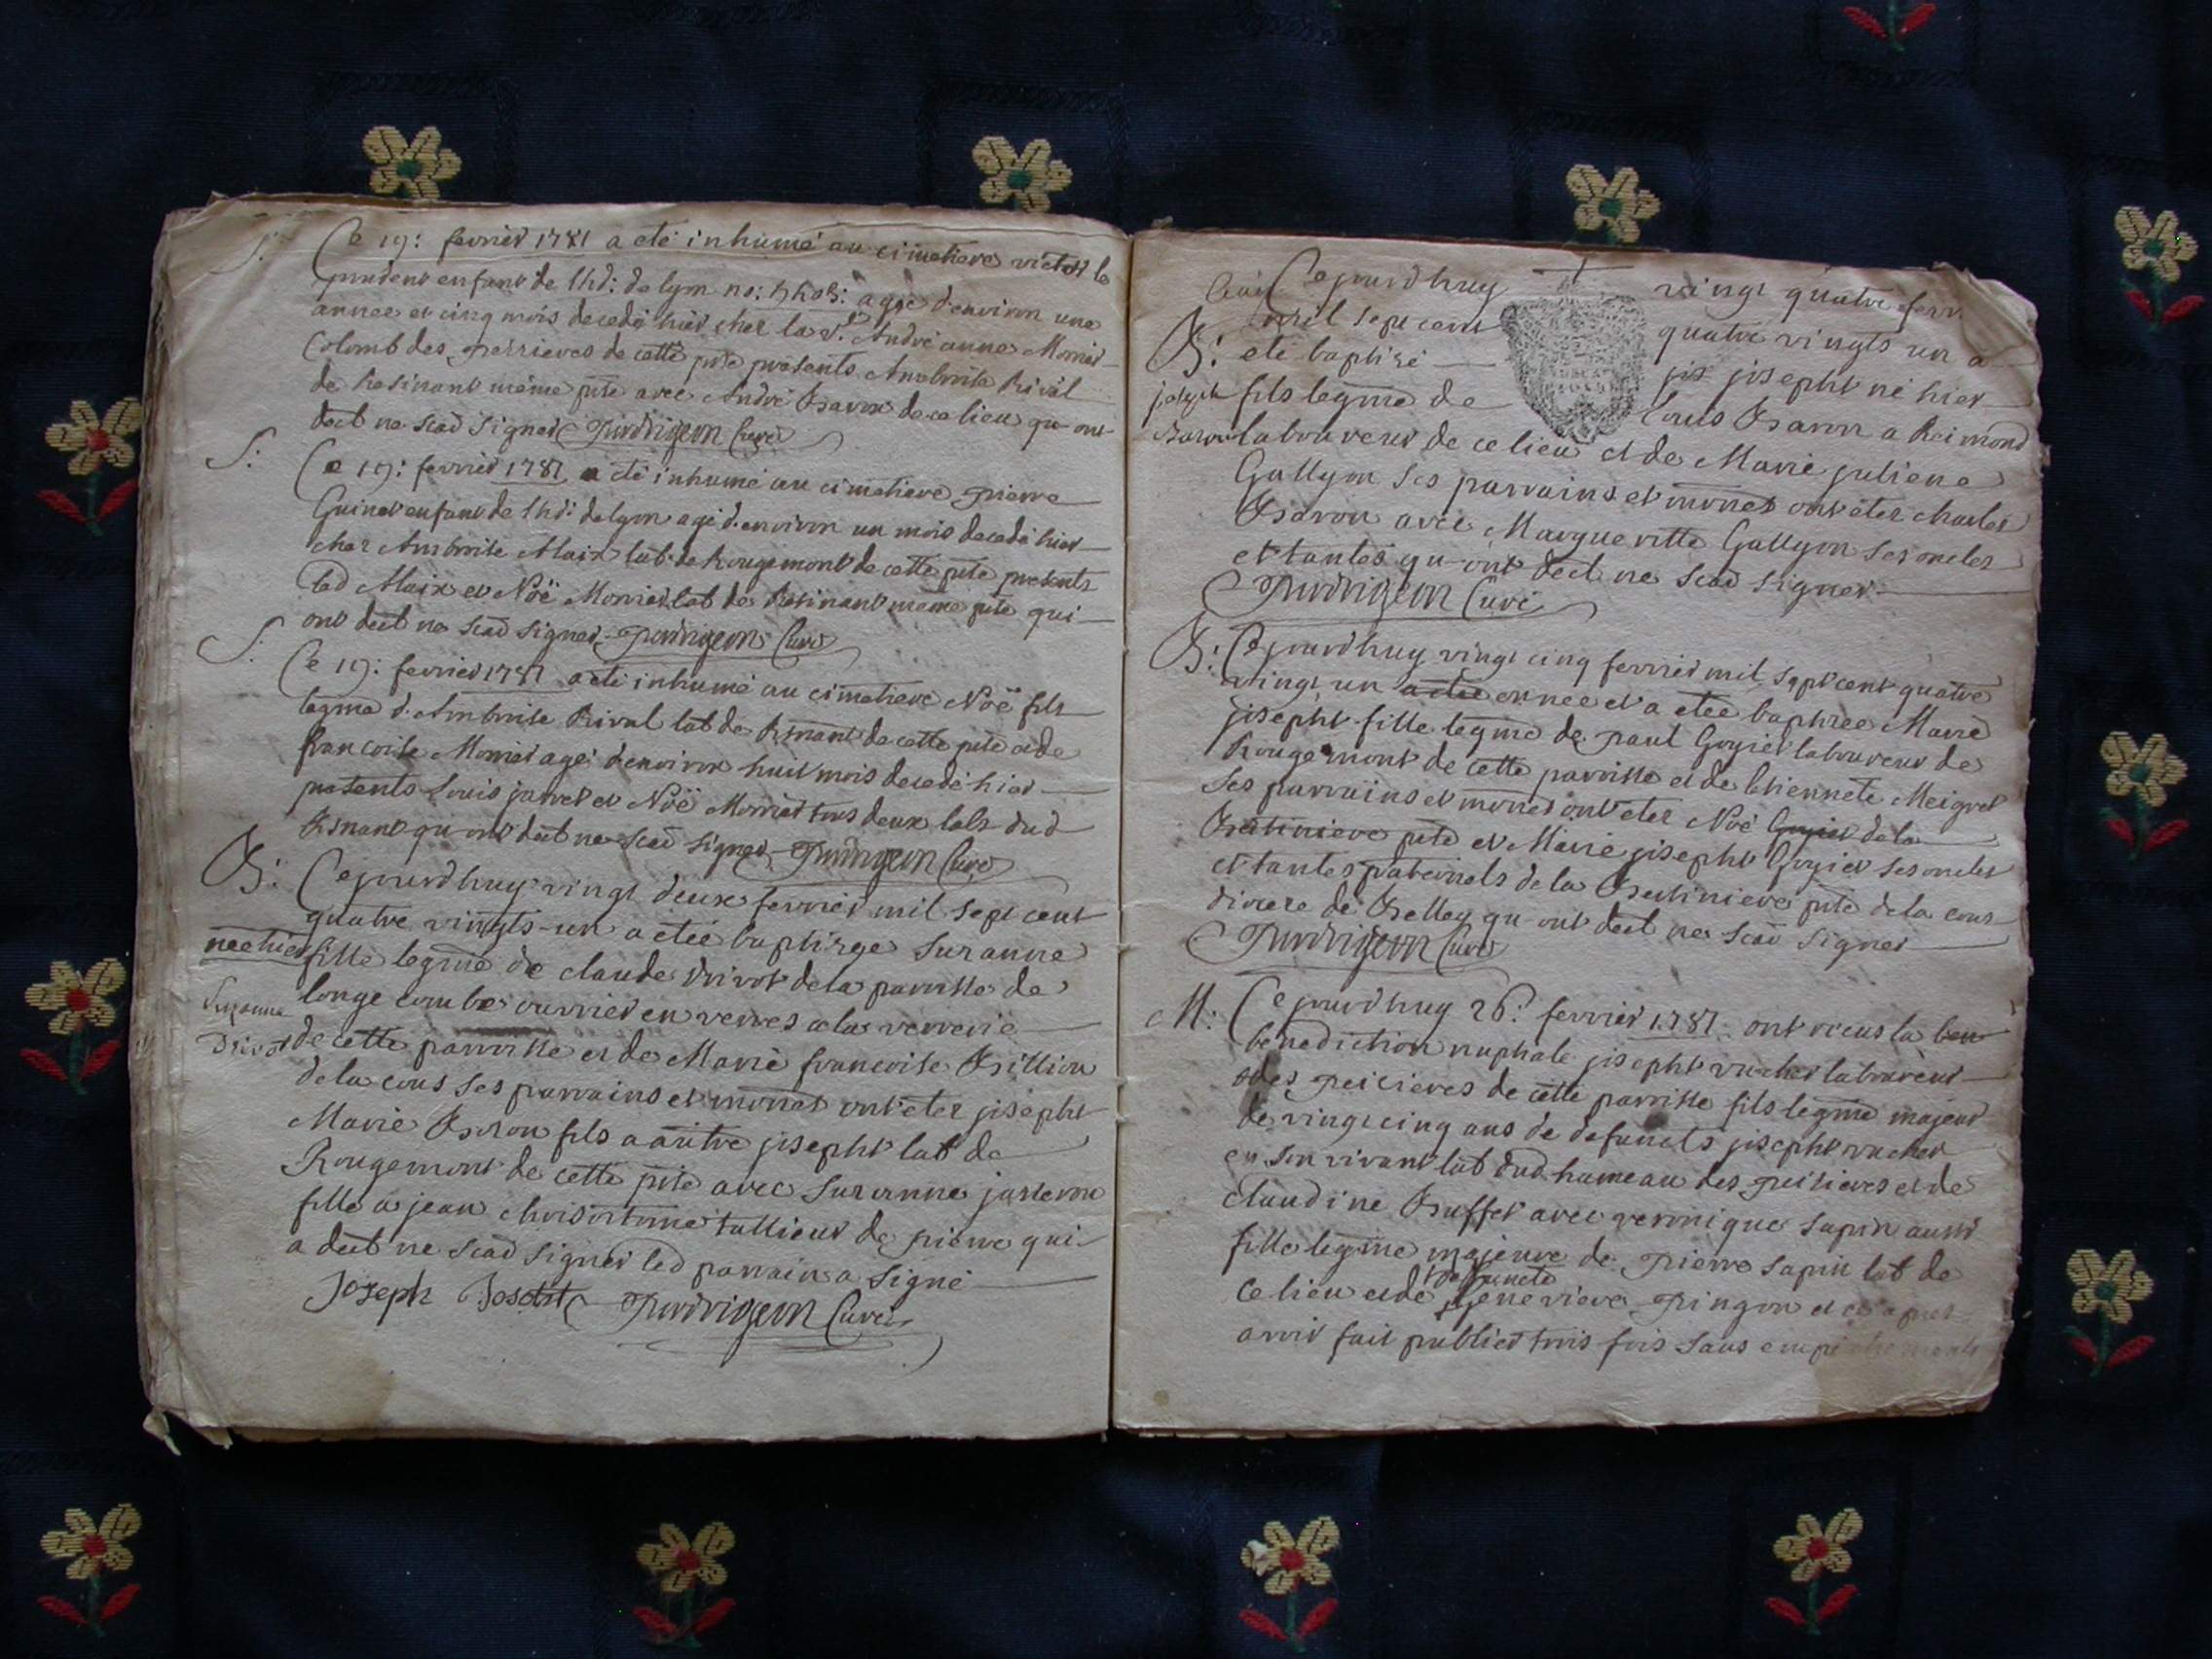 S: Ce 19: fevrier 1781 a eté inhumé au cimetiere victor le
prudent enfant de lhd: de lyon no: agé d'environ une
année et cinq mois decedé hier chez la v.e André anne Monier
Colomb des perrieres de cette pste presents Ambroise Rival
de Resinant même pste avec André Baron de ce lieu qu-ont
declt ne scad signer Curé
S: Ce 19: fevrier 1781 a eté inhumé au cimetiere pierre
Guinet enfant de lhd: de lyon agé d'environ un mois decedé hier
chez Ambroise Alaix lab: de Rougemont de cette pste presents
led Alaix et Noë Monier lab de Resinant meme pste qui
ont declt ne scad signer Curé
S: Ce 19: fevrier 1781 a eté inhumé au cimetiere Noë fils
legme d'Ambroise Rival lab de Resinant de cette pste et de
francoise Monier agé d'environ huit mois decedé hier
presents Louis jarret et Noë Monier tous deux labs dud
Resinant qu-ont declt ne scad signer Curé
B: Cejourdhuy vingt deux fevrier mil sept cent
quatre vingts-un a eteé baptisée Suzanne
neé hier fille legme de claude Drivot de la parroisse de
Suzanne longe combe ouvrier en verres a la verrerie
Drivot de cette parroisse et de Marie francoise Billion
de la cous ses parrains et mones ont eter jisepht
Marie fils a autre jisepht lab de
Rougemont de cette pste avec Suzanne
fille a jean tallieur de pierre qui
a declt ne scad signer led parrain a signé
Joseph Curé
Cejourdhuy vingt quatre fevr.
mil sept cent quatre vingts un a
B: eté baptisé jisepht né hier
joseph fils legme de Louis Baron a Reimond
Baron laboureur de ce lieu et de Marie juliene
Gallyon ses parrains et mones ont eter charles
Baron avec Margueritte Gallyon ses oncles
et tantes qu-ont declt ne scad signer
Curé
B: Cejourdhuy vingt cinq fevrier mil sept cent quatre
vingt un a etee en neé et a eteé baptisee Marie
jisepht fille legme de paul Goyiet laboureur de
Rougemont de cette parroisse et de Etiennete Meigret
ses parrains et mones ont eter Noé Goyiet de la
Bertiniere pste et Marie jisepht Goyiet ses oncles
et tantes paternels de la Bertiniere pste de la cous
diocese de Belley qu-ont declt ne scad signer
Curé
M: Cejourdhuy 26: fevrier 1781 ont recus la ben
benediction nuptiale jisepht vucher laboureur
des peisieres de cette parroisse fils legme majeur
de vingt cinq ans de defuncts jisepht vucher
en son vivant lab dud hameau des peisieres et de
claudine Buffet avec veronique Sapin aussi
fille legme majeure de pierre Sapin lab de
defuncte
ce lieu et de Genevieve pingon et ce apres
avoir fait publier trois fois sans empechements